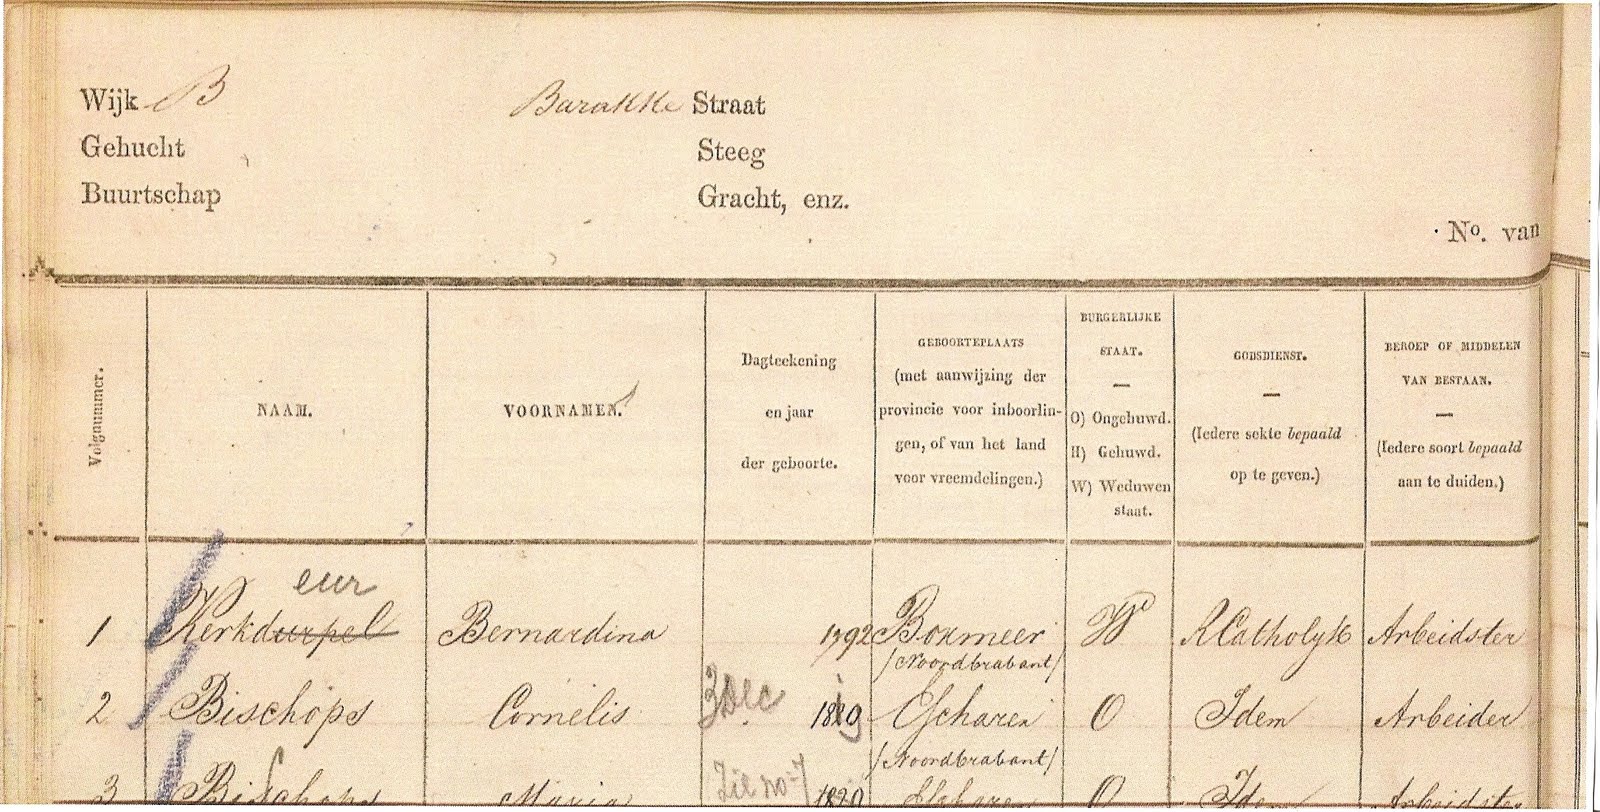 Wijk B Barakke Straat
Gehucht Steeg
Buurtschap Gracht, enz.
No. van
Volgnummer.
NAAM.
VOORNAMEN.
Dagteekening
en jaar
der geboorte.
GEBOORTEPLAATS
(met aanwijzing der
provincie voor inboorlin-
gen, of van het land
voor vreemdelingen.)
BURGERLIJKE
STAAT.
O) Ongehuwd.
H) Gehuwd.
W) Weduwen
staat.
GODSDIENST.
(Iedere sekte bepaald
op te geven.)
BEROEP OF MIDDELEN
VAN BESTAAN.
(Iedere soort bepaald
aan te duiden.)
eur
1 Kerkdurpel Bernardina 1792 Boxmeer W R Catholyk Arbeidster
/Noordbrabant/
2 Bisschops Cornelis 3 Dec Escharen O Idem Arbeider
/Noordbrabant/
3 Bisschops Maria 1820 Escharen O Idem Arbeidster